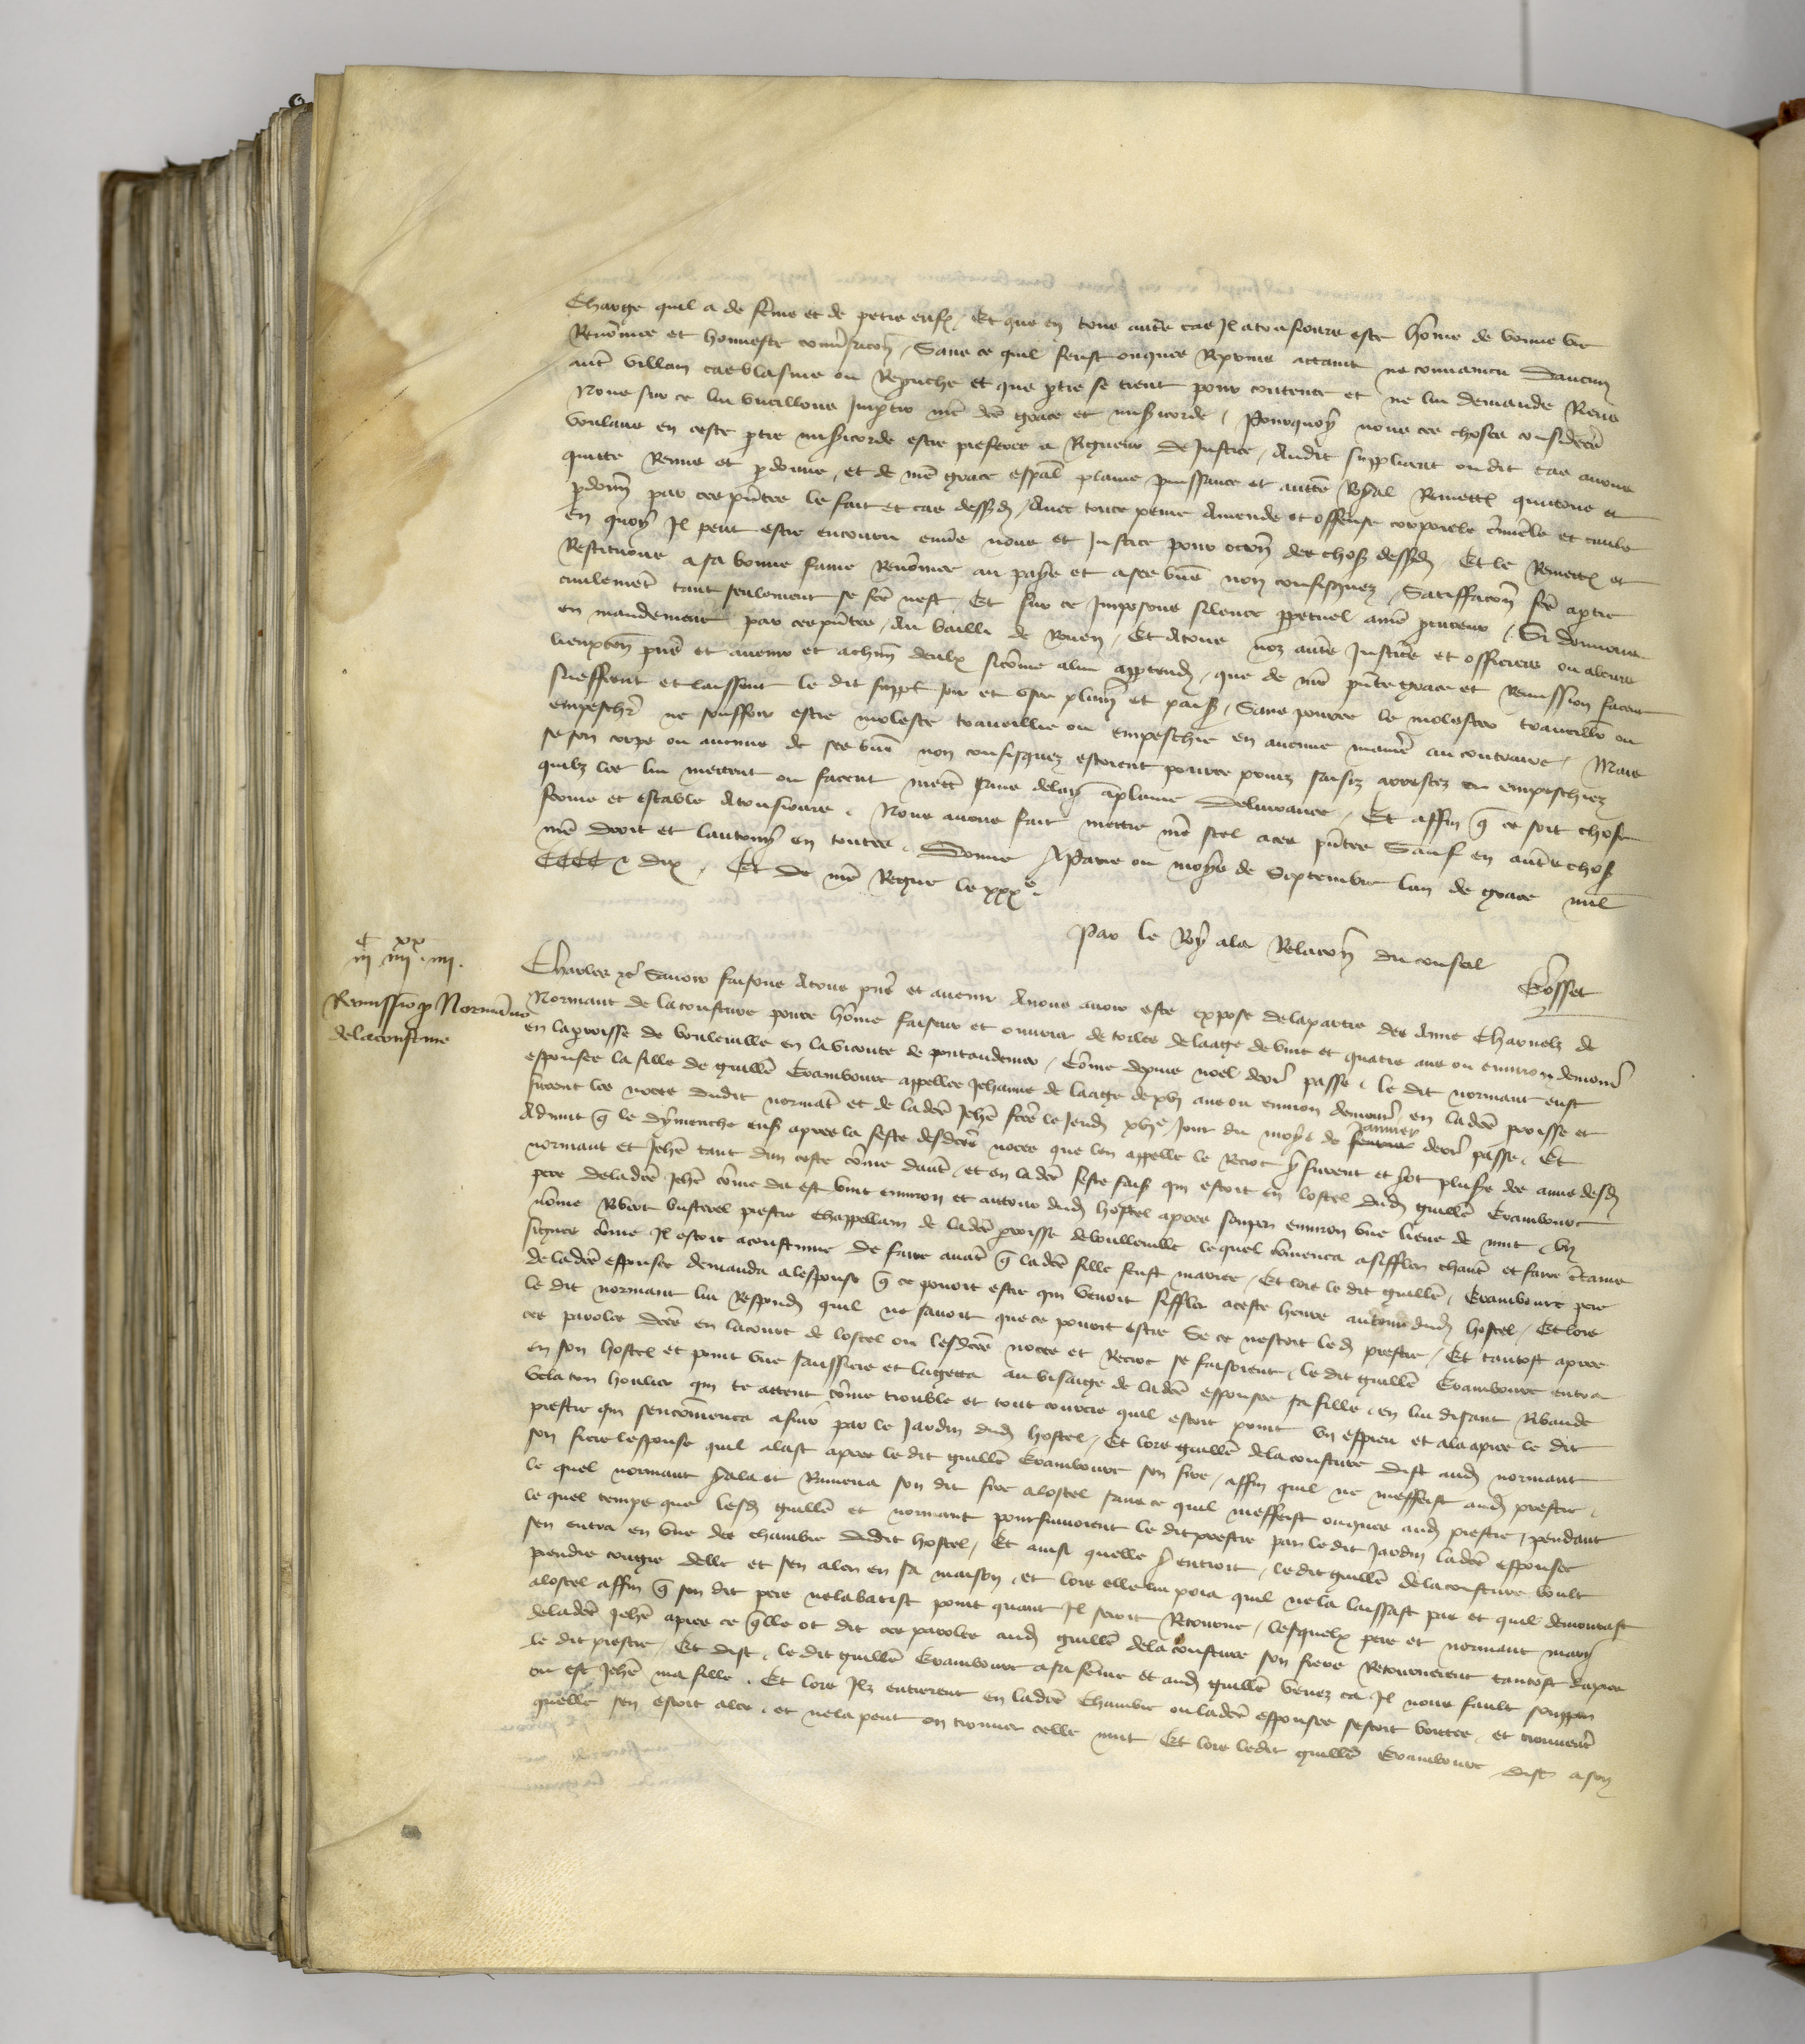 Charge quil a de fēme et de petis enfs / Et que en tous autrs cas Il a tousiours este hōme de bonne vie
Renōmee et honneste conūsacon / Sans ce quil feust onques Repris attaint ne conuaincu daucun
autre villain cas blasme ou Reprouche et que ptie se tient pour contente et ne lui demande Riens
Nous sur ce lui vueillons Impartir nrē dcē grace et misicorde / Pourquoy nous ces choses considerēs
voulans en ceste ptie misicorde estre preferee a Rigueur de Justice / Audit suppliant ou dit cas auons
quitte Remis et pdonne / et de nrē grace espāl plaine puissance et auctē Royal Remettōs quittons et
pdonnōs par ces pñtes le fait et cas dessusd / Auec toute peine Amende et offense corporele crīmīele et ciuile
En quoy Il peut estre encouru enuers nous et Justice pour occōn des choses dessusd / Et le Remettōs et
Restituons a sa bonne fame Renōmee au pays et a ses biēs non confisquez / Satisffacōn fcē a ptie
ciuilemēt tant seulement se fcē nest / Et sur ce Imposons silence ppetuel a nrē procureur / Si donnons
en mandement par ces pñtes / Au bailli de Rouen / Et A tous noz autrs Justiciers et officiers ou a leurs
lieuxten pñs et auenir et a chūn deulx sicōme a lui apptendra / que de nrē pñte grace et Remission facent
sueffrent et laissent le dit suppl joir et vser plainemt et paisiblemt / Sans pour ce le molester trauaillier ou
empeschier ne souffrir estre moleste trauaillie ou empeschie en aucune maniere au contraire / Mais
se son corps ou aucuns de ses biēs non confisquez estoient pour ce prins saisiz arrestez ou empeschiez
quilz les lui mettent ou facent mettr sans delay a plaine deliurance / Et affin q ce soit chose
ferme et estable A tousiours / Nous auons fait mettre nrē seel a ces pñtes Sauf en autrs choses
nrē droit et lautruy en toutes / Donne A paris ou moys de Septembre lan de grace mil
CCCC & dix / Et de nrē Regne le xxxe
Par le Roy a la Relacōn du conseil
Cosset
iijC iiijxx iiij.
Remissio p Normāno
de la cousture
Charles &c Sauoir faisons A tous pñs et auenir A nous auoir este expose de la partie des Amis Charnelz de
Normant de la cousture poure hōme faiseur et ouurier de toiles de laage de vint et quatre ans ou enuiron demourāt
en la proisse de bouleuille en la viconte de pontaudemer / Cōme depuis noel derr passe / le dit normant eust
espousee la fille de guillē Erambourc appellee Jehanne de laage de xvj ans ou enuiron demourāt en ladcē proisse et
furent les noces dudit normāt et de ladcē Jehē fctēs le Jeudi xvje Jour du moys de feurier Januier derr passe / Et
Aduint q le dymenche ens apres la feste desdctēs noces que len appelle le Recroc y furent et y ot plusrs des amis desd
normant et Jehē tant dun coste cōme dautr / et en ladcē feste fais qui estoit en lostel dud guillē Erambourc
pere de ladcē Jehē cōme dit est vint enuiron et autour dud hostel apres souper enuiron vne lieue de nuit / vn
nōme Robert busterel prestre Chappellain de ladcē proisse de boulleuille lequel cōmenca a siffler chantr et faire certains
signes cōme Il estoit acoustume de faire auāt q ladcē fille feust mariee / Et lors le dit guillē / Erambourc pere
de ladcē espousee demanda a lespouse q ce pouoit estre qui venoit siffler a ceste heure autour dud hostel / Et lors
le dit normant lui Respondi quil ne sauoit que ce pouoit estre Se ce nestoit led prestre / Et tantost apres
ces paroles dctēs en la court de lostel ou lesdctēs noces et Recroc se faisoient / le dit guillē Erambourc entra
en son hostel et print vne saussiere et la getta au visaige de ladcē espousee sa fille / en lui disant Ribaude
vela ton houlier qui te attent cōme trouble et tout courcie quil estoit print vn espieu et ala apres le dit
prestre qui sencōmenca a fuir par le Jardin dud hostel / Et lors guillē de la cousture dist aud normant
son frere lespouse quil alast apres le dit guillē Erambourc son sire / affin quil ne meffeist aud prestre /
le quel normant y ala et Ramena son dit sire a lostel sans ce quil meffeist onques aud prestre / pendant
le quel temps que lesd guillē et normant poursuiuoient le dit prestre par le dit Jardin ladcē espousee
sen entra en vne des chambres dudit hostel / Et ainsi quelle y entroit / le dit guillē de la cousture voult
prendre congie delle et sen aler en sa maison / et lors elle lui pria quil ne la laissast pas et quil demourast
a lostel affin q son dit pere ne la batist point quant Il seroit Retourne / lesquelx pere et normant mary
de ladcē Jehē apres ce qlle ot dit ces paroles aud guillē de la cousture son frere Retournerent tantost dapres
le dit prestre / Et dist / le dit guillē Erambourc a sa fēme et aud guillē venez ca Il nous fault souppr
ou est Jehē ma fille / Et lors Ilz entrerent en ladcē Chambre ou ladcē espousee sestoit boutee / et trouuerēt
quelle sen estoit alee / et ne la peut on trouuer celle nuit Et lors ledit guillē Erambourc dist a son